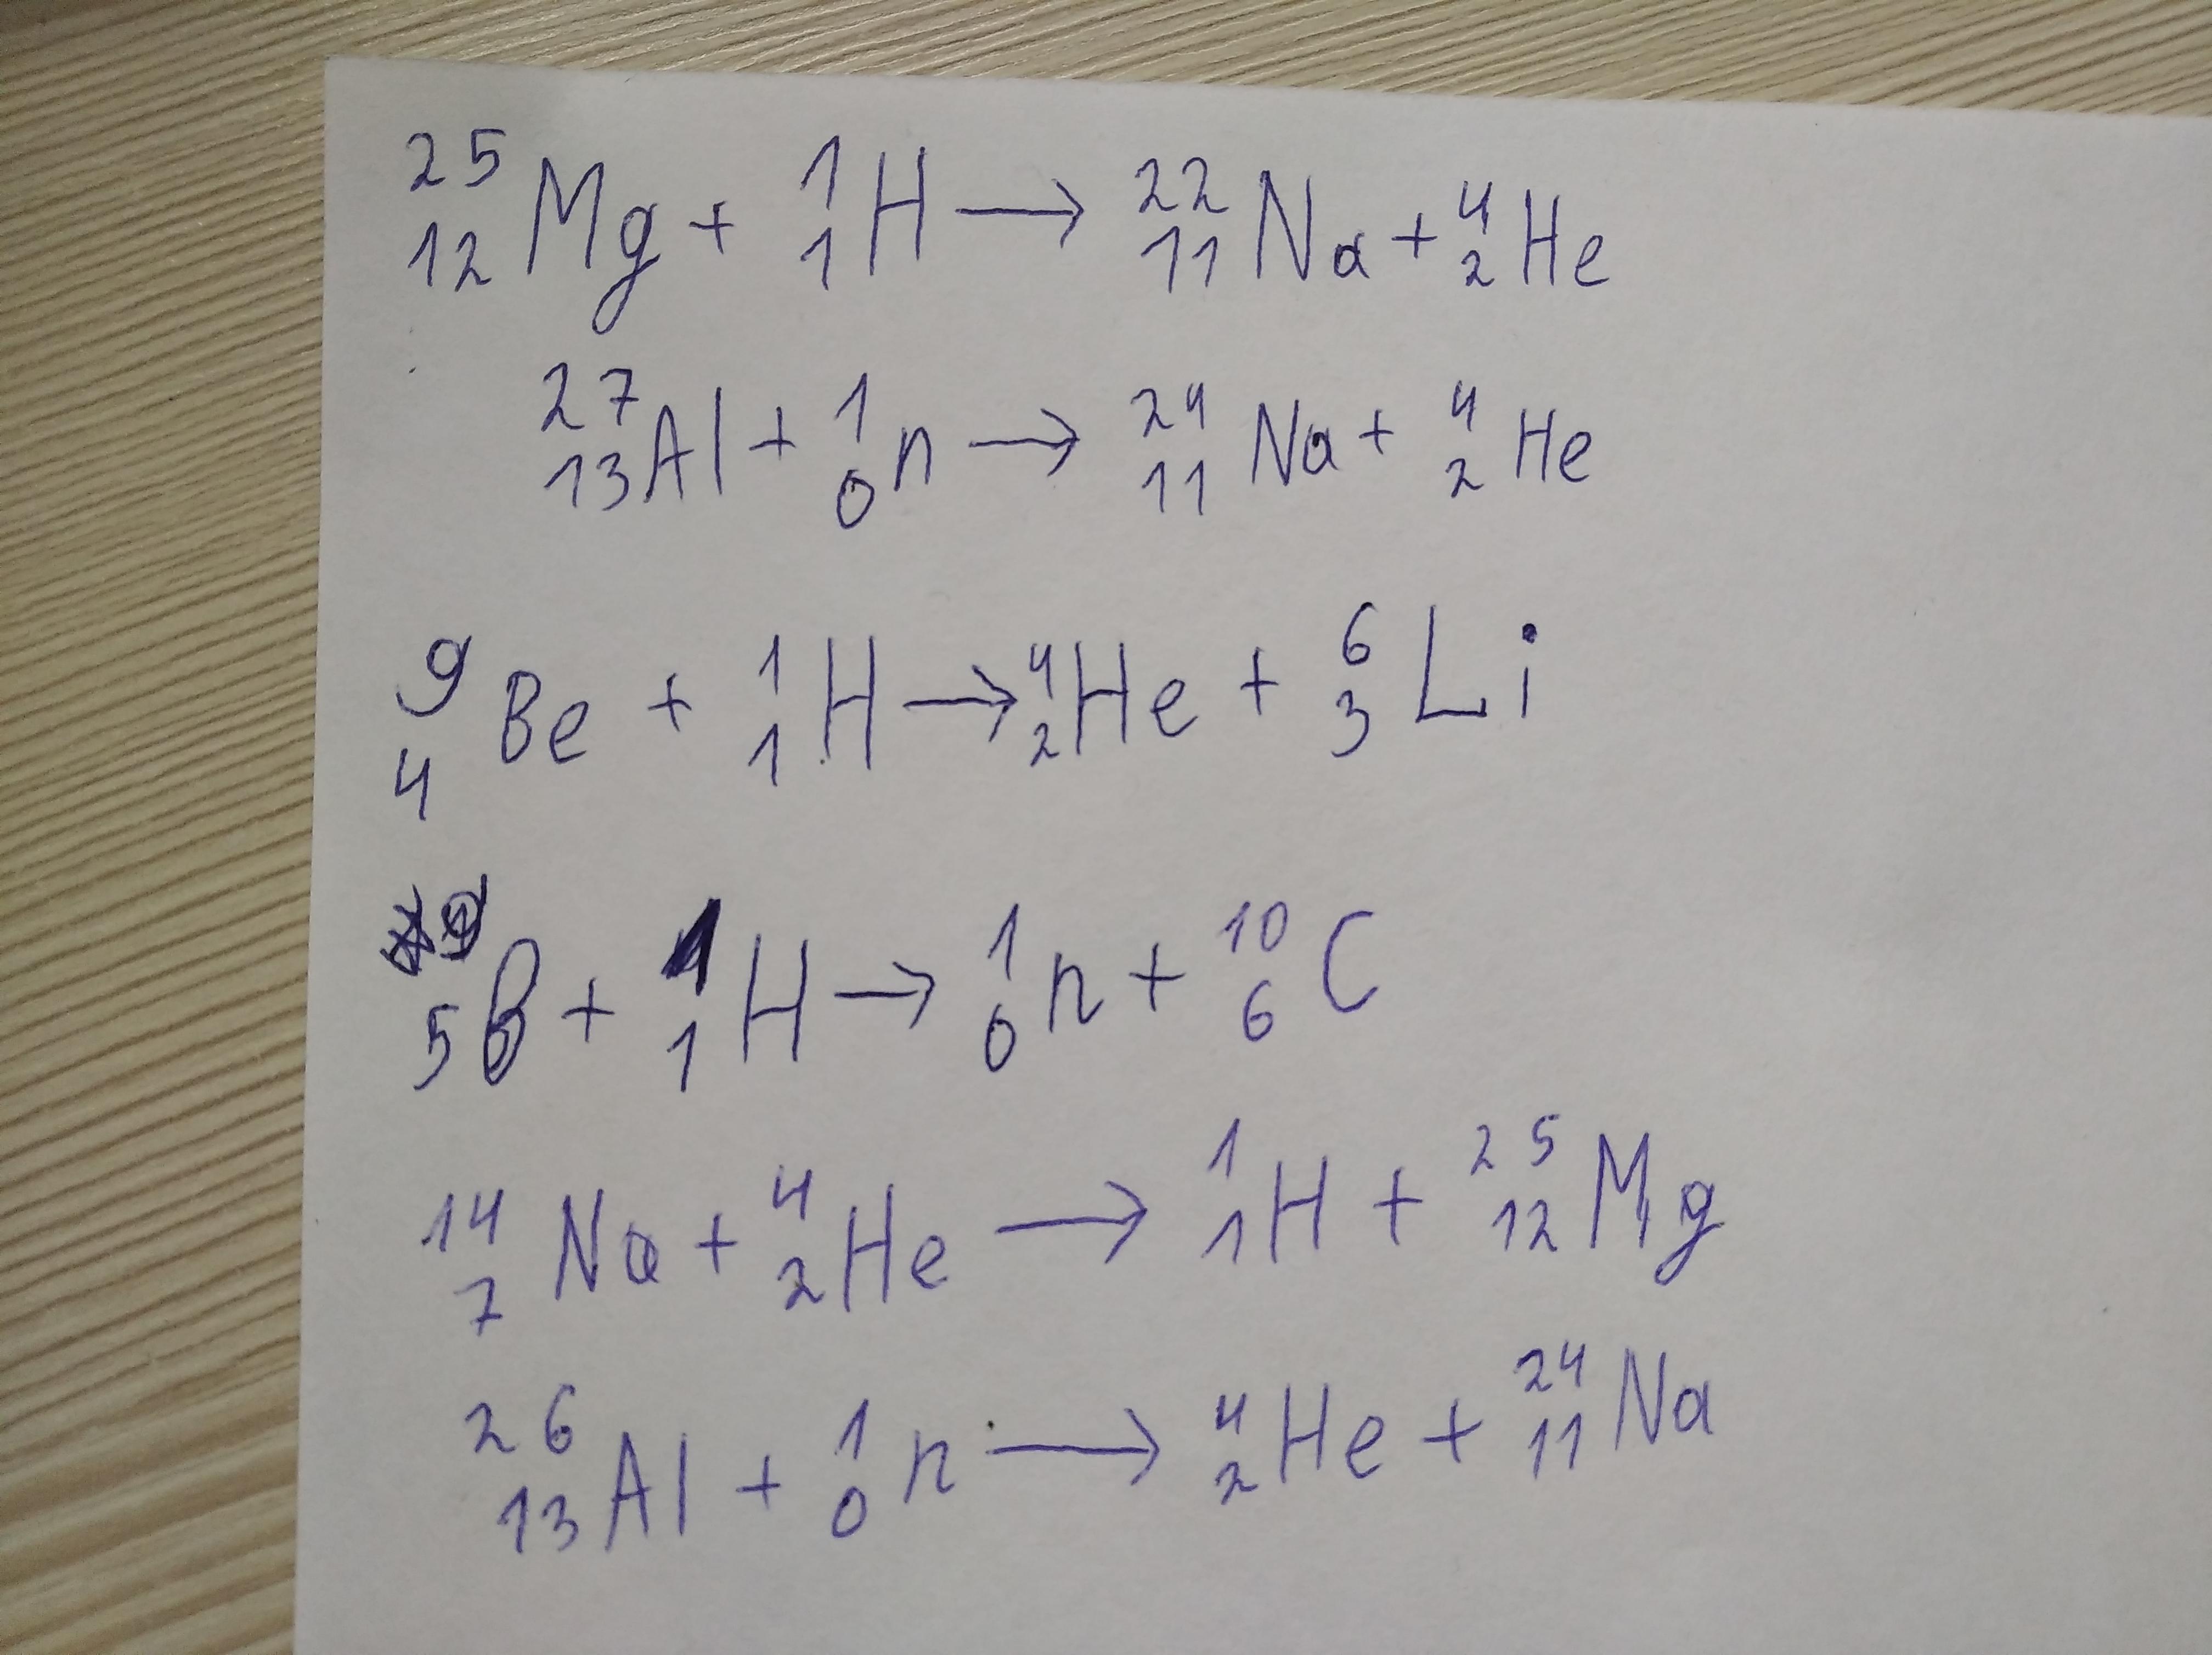 ²⁵₁₂Mg + ¹₁H → ²²₁₁Na + ⁴₂He
²⁷₁₃Al + ¹₀n → ²⁴₁₁Na + ⁴₂He
⁹₄Be + ¹₁H → ⁴₂He + ⁶₃Li
₅B + ¹₁H → ¹₀n + ¹⁰₆C
¹⁴₇Na + ⁴₂He → ¹₁H + ²⁵₁₂Mg
²⁶₁₃Al + ¹₀n → ⁴₂He + ²⁴₁₁Na